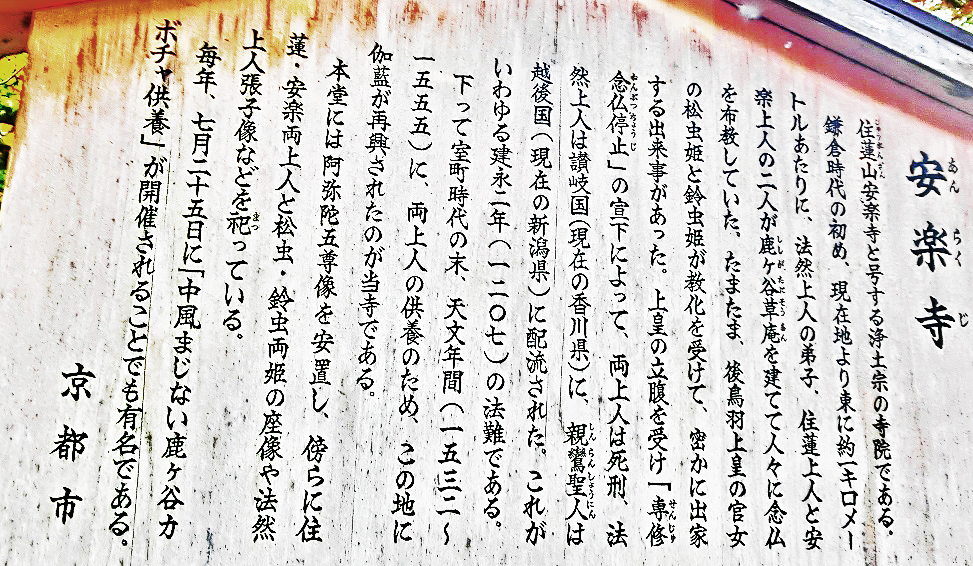 安楽寺
住蓮山安楽寺と号する浄土宗の寺院である。
鎌倉時代の初め、現在地より東に約一キロメー
トルあたりに、法然上人の弟子、住蓮上人と安
楽上人の二人が鹿ヶ谷草庵を建てて人々に念仏
を布教していた。たまたま、後鳥羽上皇の官女
の松虫姫と鈴虫姫が教化を受けて、密かに出家
する出来事があった。上皇の立腹を受け「専修
念仏停止」の宣下によって、両上人は死刑、法
然上人は讃岐国(現在の香川県)に、親鸞聖人は
越後国(現在の新潟県)に配流された。これが
いわゆる建永二年(一二〇七)の法難である。
下って室町時代の末、天文年間(一五三二〜
一五五五)に、両上人の供養のため、この地に
伽藍が再興されたのが当寺である。
本堂には阿弥陀五尊像を安置し、傍らに住
蓮・安楽両上人と松虫・鈴虫両姫の座像や法然
上人張子像などを祀っている。
毎年、七月二十五日に「中風まじない鹿ヶ谷カ
ボチャ供養」が開催されることでも有名である。
京都市